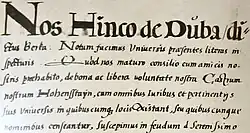 Nos Hinco de Duba di-
ctus Berka. Notum facimus Universis praesentes literas in-
specturis Quod nos maturo consilio cum amicis no-
stris prehabito, de bona ac libera voluntate nostra Castrum
nostrum Hohenstayn, cum omnibus juribus et pertinentijs
suis Universis in quibuscumq; locis existant, seu quibus cunque
nominibus censeantur, suscepimus in feudum a Serenissimo